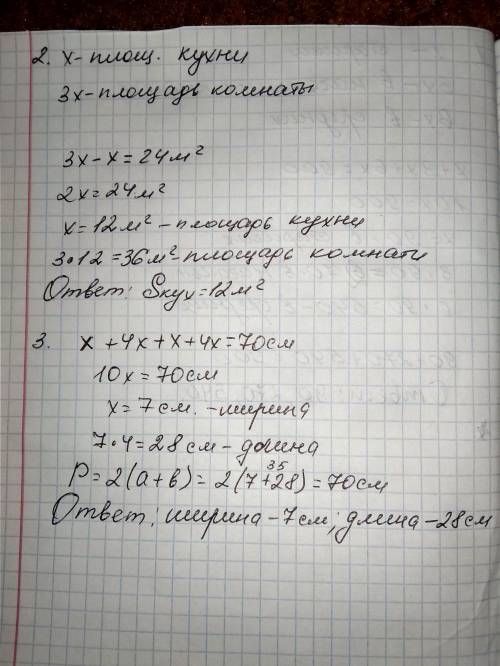 2. x - площ. кухни
3x - площадь комнаты
3x - x = 24 м²
2x = 24 м²
x = 12 м² - площадь кухни
3•12 = 36 м² - площадь комнати
Ответ: Sкух = 12 м²
3. x + 4x + x + 4x = 70 см
10x = 70 см
x = 7 см. - ширина
7•4 = 28 см - длина
35
P = 2(a+b) = 2(7+28) = 70 см
Ответ: ширина - 7 см; длина - 28 см